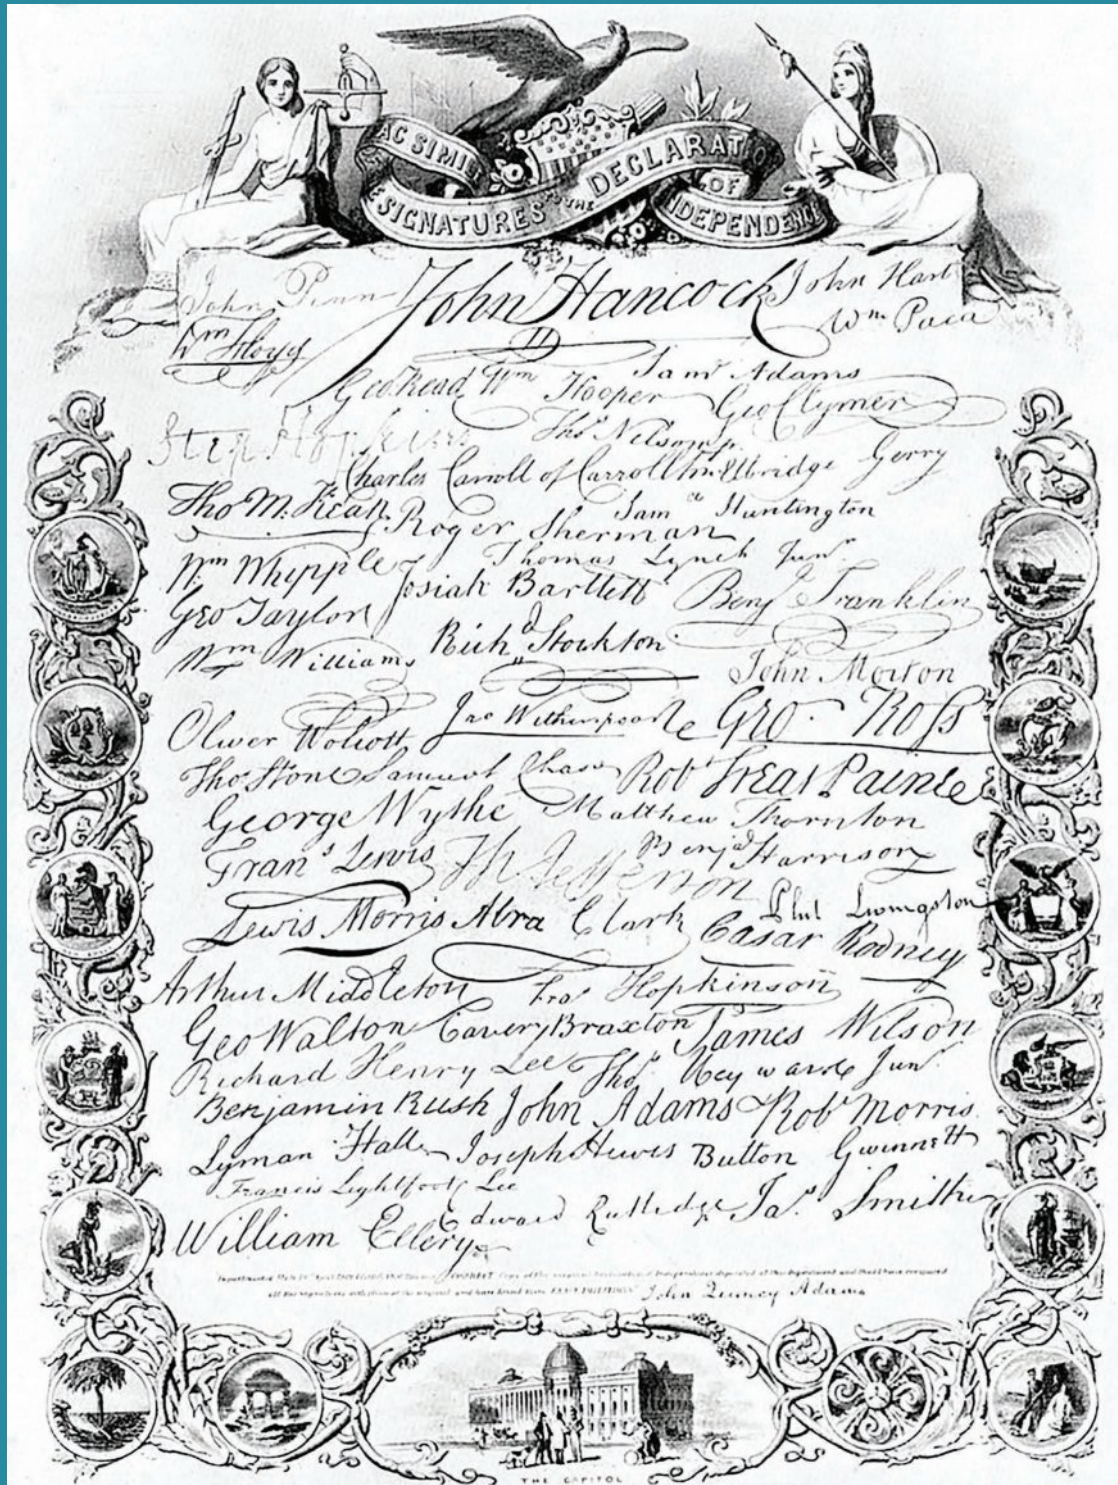 FAC SIMILE
SIGNATURES TO THE DECLARATION
OF
INDEPENDENCE
John Penn John Hancock John Hart
Wm Floyd Wm Paca
Saml Adams
Geo Read Wm Hooper Geo Clymer
Step Hopkins Thos Nelson jr.
Charles Carroll of Carrollton Elbridge Gerry
Tho M:Kean Roger Sherman Saml Huntington
Wm Whipple Thomas Lynch Junr.
Josiah Bartlett Benj Franklin
Geo Taylor
Wm Williams Richd Stockton John Morton
Oliver Wolcott Jno Witherspoon Geo. Ross
Thos Stone Samuel Chase Robt Treat Paine
George Wythe Matthew Thornton
Frans Lewis Th Jefferson Benja Harrison
Lewis Morris Abra Clark Phil Livingston
Cæsar Rodney
Arthur Middleton Fras Hopkinson
Geo Walton Carter Braxton James Wilson
Richard Henry Lee Thos Heyward Junr.
Benjamin Rush John Adams Robt Morris
Lyman Hall Joseph Hewes Button Gwinnett
Francis Lightfoot Lee
William Ellery Edward Rutledge Jas. Smith
John Quincy Adams
THE CAPITOL